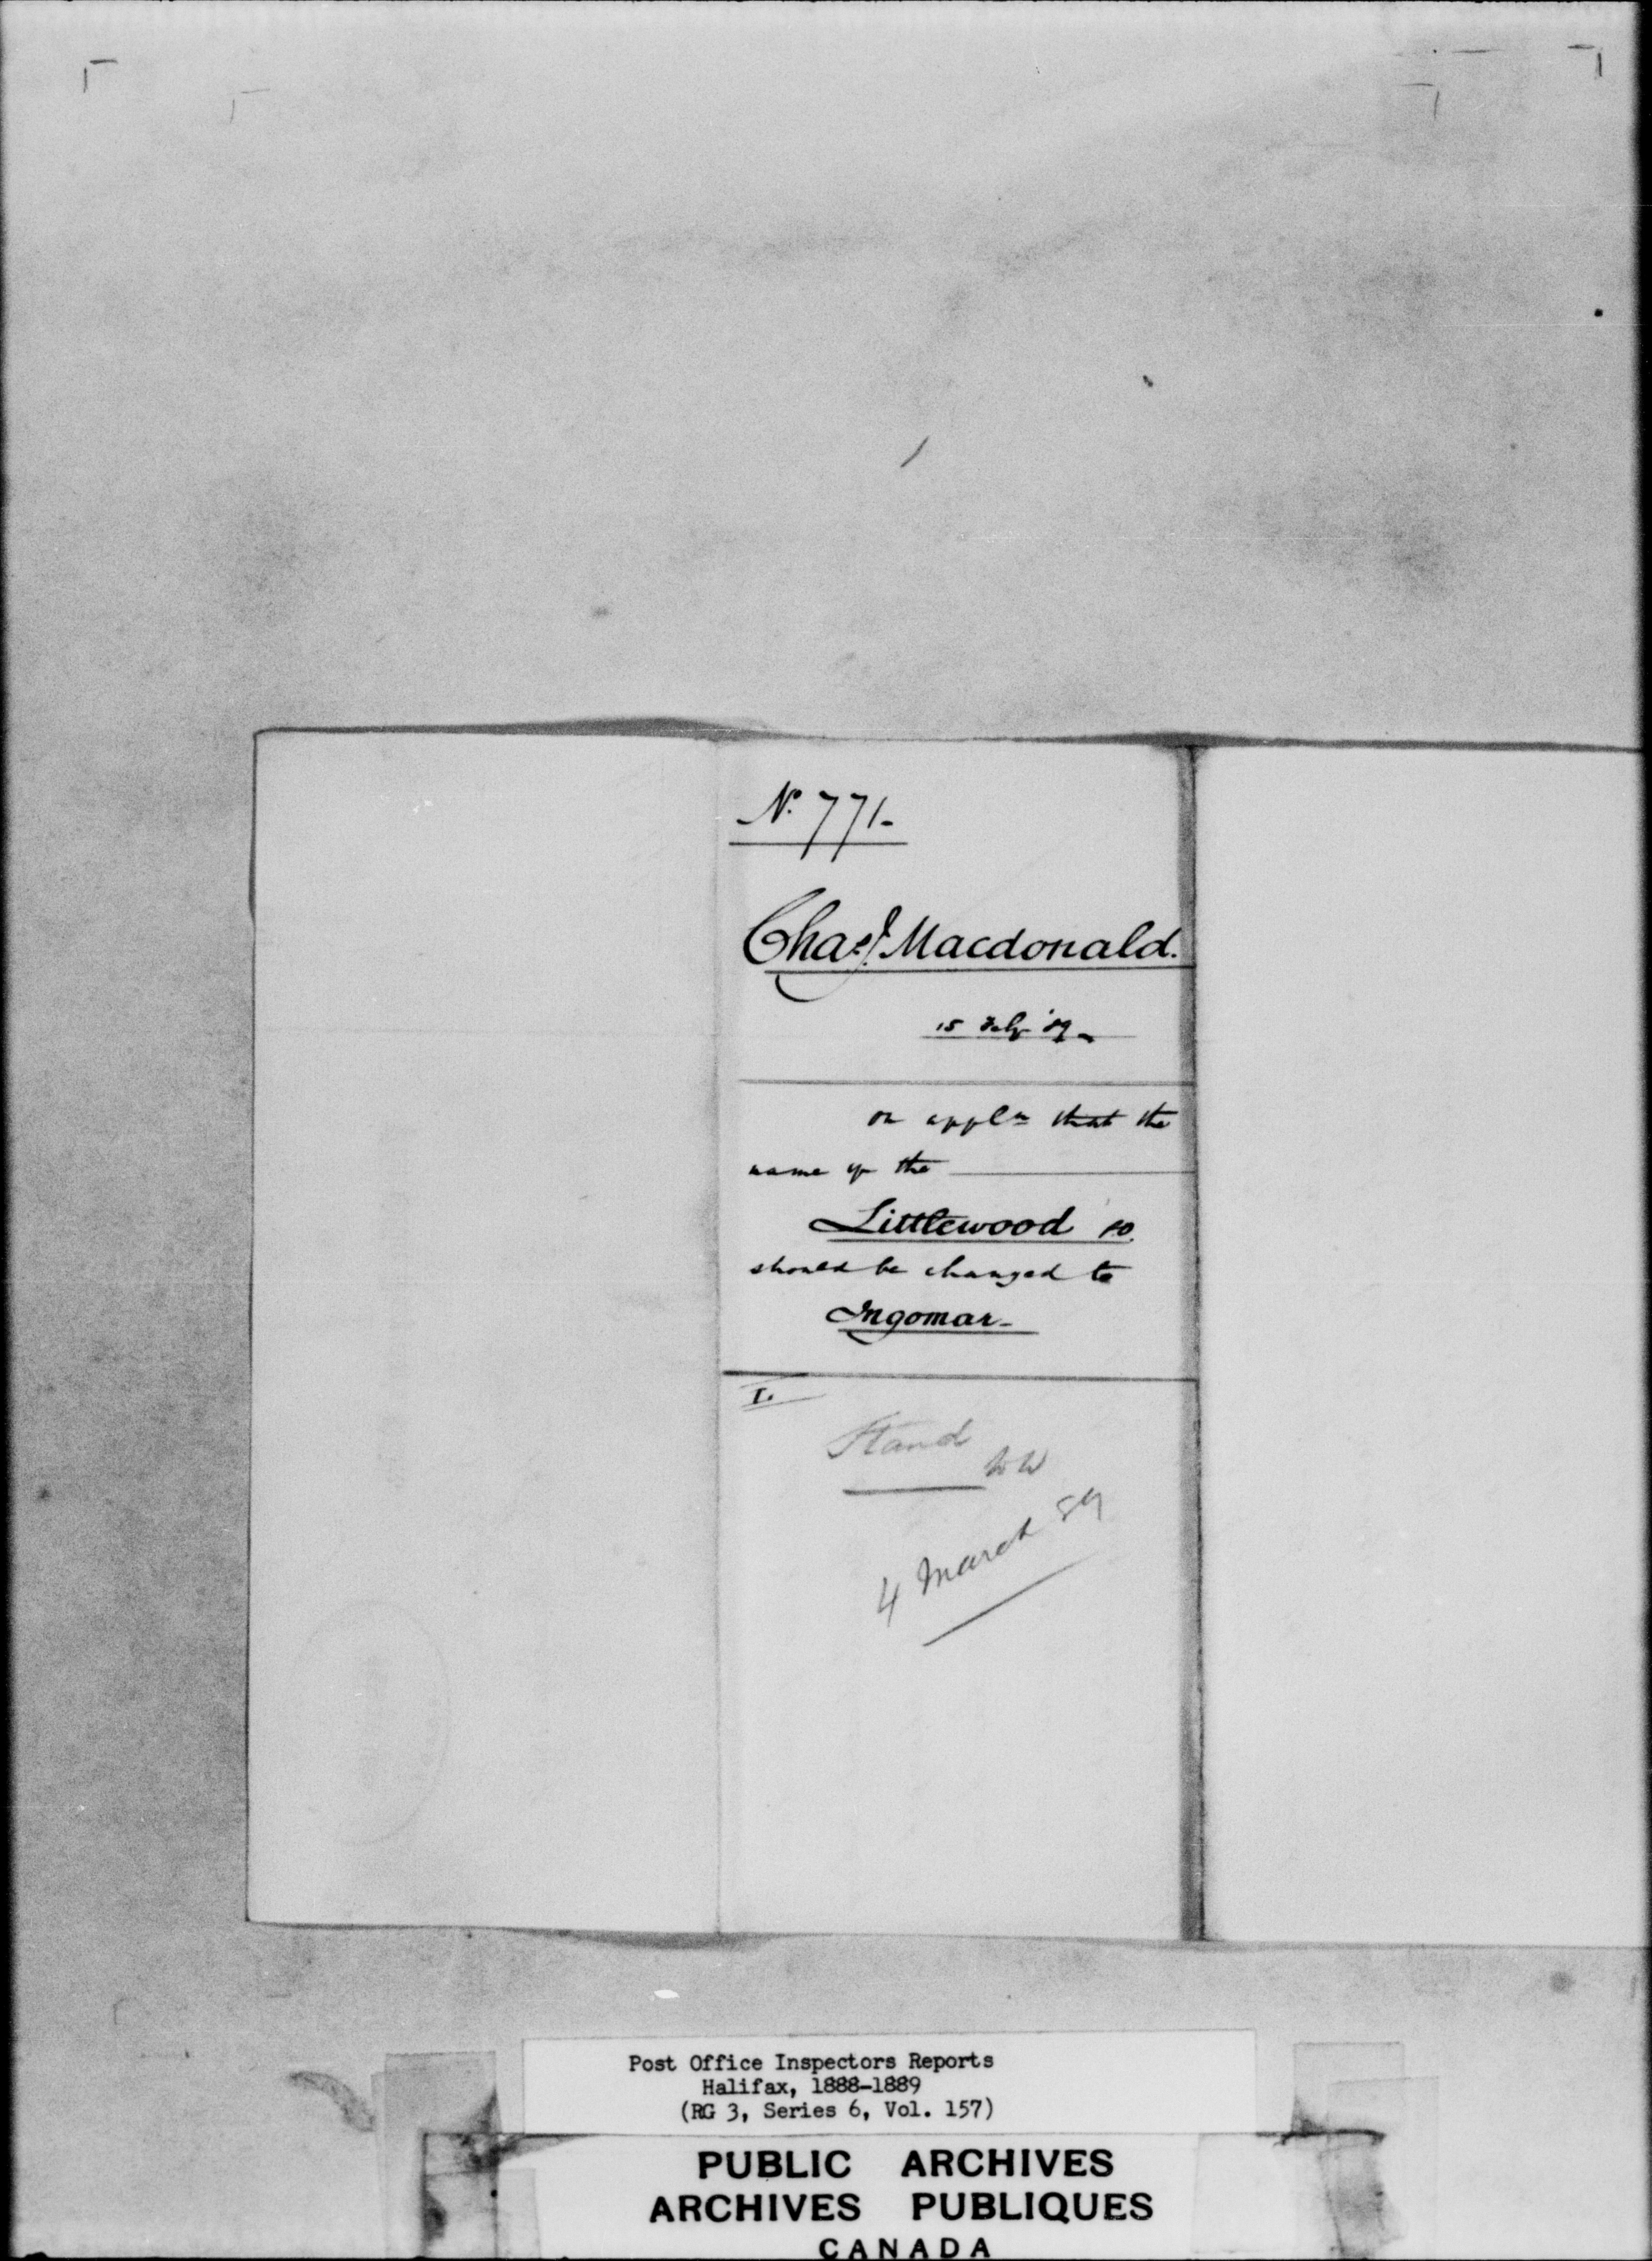 No. 771-
Chas. J. Macdonald.
15 Feby '89-
on appln that the
name of the
Littlewood P.O.
should be changed to
Ingomar-
I.
Stand
WW
4 March 89
Post Office Inspectors Reports
Halifax, 1888-1889
(RG 3, Series 6, Vol. 157)
PUBLIC ARCHIVES
ARCHIVES PUBLIQUES
CANADA